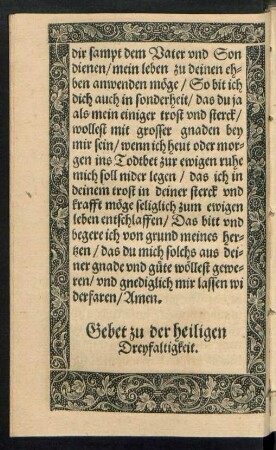 dir sampt dem Vater vnd Son
dienen/ mein leben zu deinen eh-
ben anwenden möge/ So bit ich
dich auch in sonderheit/ das du ja
als mein einiger trost vnd sterck/
wollest mit grosser gnaden bey
mir sein/ wenn ich heut oder mor-
gen ins Todtbet zur ewigen ruhe
mich soll nider legen/ das ich in
deinem trost in deiner sterck vnd
krafft möge seliglich zum ewigen
leben entschlaffen/ Das bitt vnd
begere ich von grund meines her-
tzen/ das du mich solchs aus dei-
ner gnade vnd güte wöllest gewe-
ren/ vnd gnediglich mir lassen wi
derfaren/ Amen.
Gebet zu der heiligen
Dreyfaltigkeit.